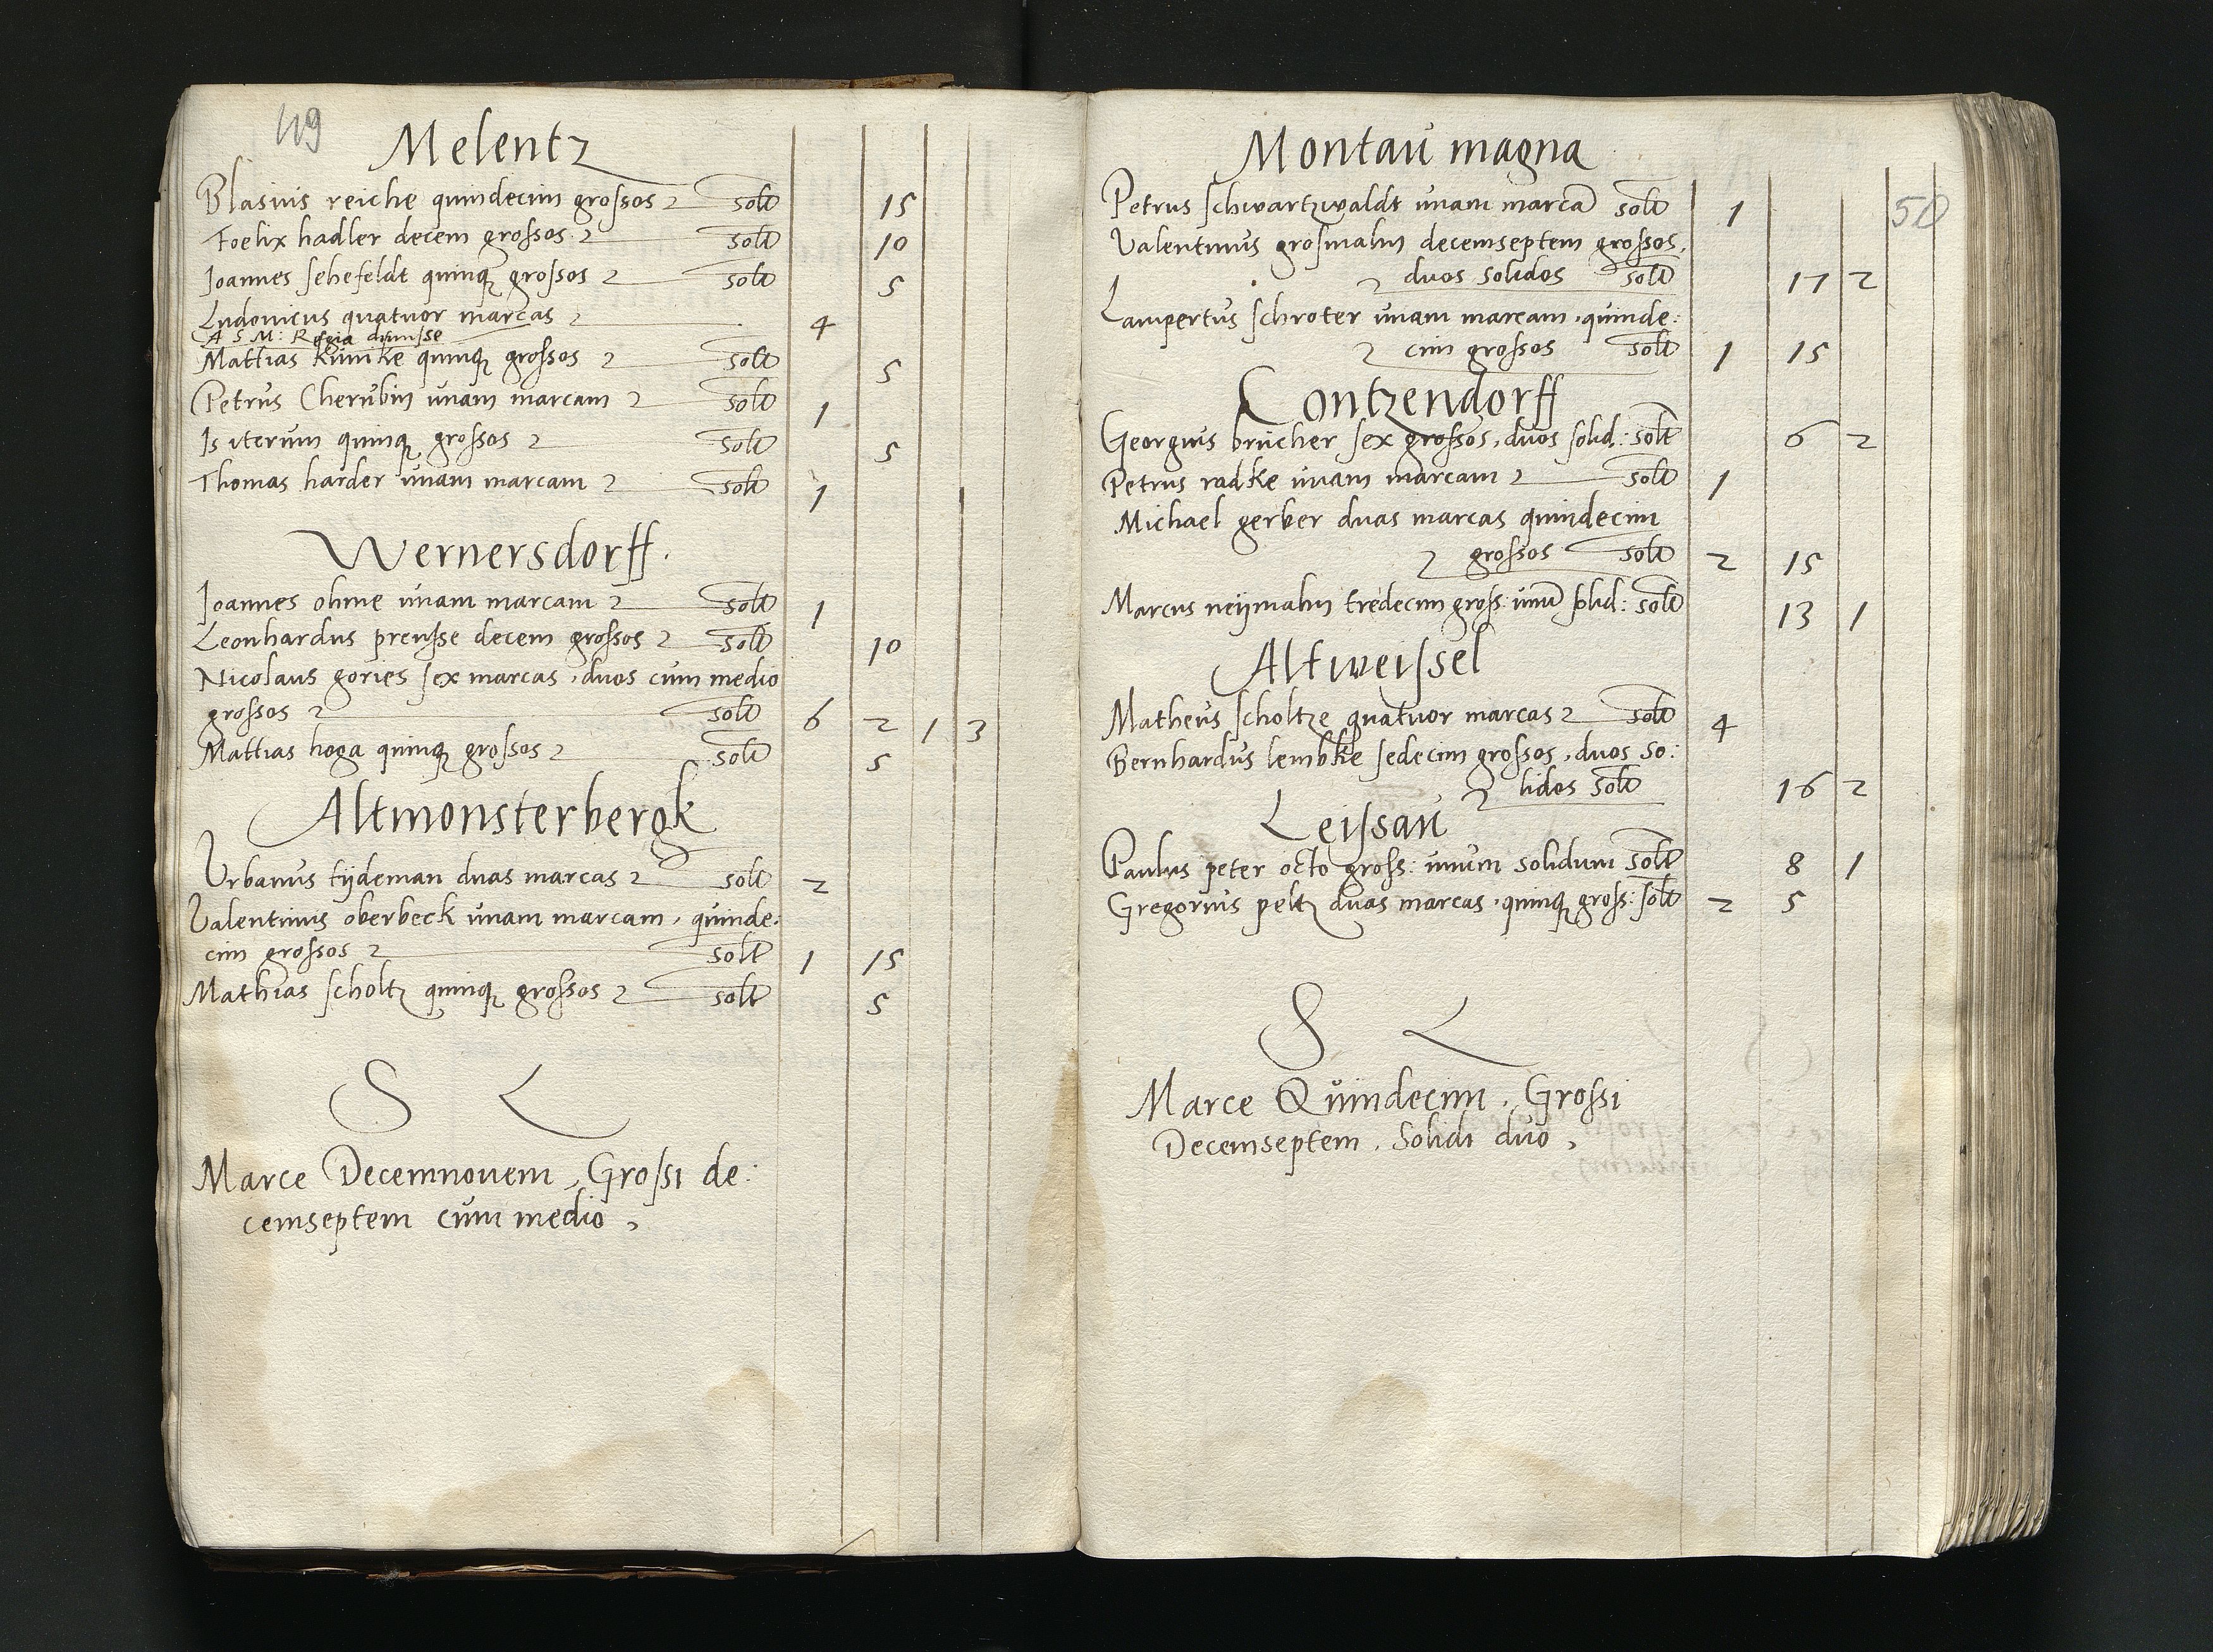 49
Melentz
Blasius reiche quindecim grossos solt 15
Foelix hadler decem grossos solt 10
Joannes sehefeldt quinq grossos solt 5
Ludovicus quatuor marcas 4
A S M: Regia
Mattias kunike quinq grossos solt 5
Petrus Cherubin unam marcam solt 1
Is iterum quinq grossos solt 5
Thomas harder unam marcam solt 1
Wernersdorff.
Joannes ohme unam marcam solt 1
Leonhardus preusse decem grossos solt 10
Nicolaus gories sex marcas, duos cum medio
grossos solt 6 2 1 3
Mattias hoga quinq grossos solt 5
Altmonsterbergk
Urbanus tijdeman duas marcas solt 2
Valentinus oberbeck unam marcam, quinde:
cim grossos solt 1 15
Mathias scholtz quinq grossos solt 5
S L
Marce Decemnovem, Grossi de:
cemseptem cum medio,
50
Montau magna
Petrus schwartzwaldt unam marcā solt 1
Valentinus grosmahn decemseptem grossos,
duos solidos solt 17 2
Lampertus schroter unam marcam, quinde:
cim grossos solt 1 15
Contzendorff
Georgius brücher sex grossos, duos solid: solt 6 2
Petrus radke unam marcam solt 1
Michael gerber duas marcas quindecim
grossos solt 2 15
Marcus neijmahn tredecim gross: unū solid: solt 13 1
Altweissel
Matheus scholtze quatuor marcas solt 4
Bernhardus lembke sedecim grossos, duos so:
lidos solt 16 2
Leissau
Paulus peter octo gross: unum solidum solt 8 1
Gregorius peltz duas marcas, quinq gross: solt 2 5
S L
Marce Quindecim, Grossi
Decemseptem, Solidi duo,